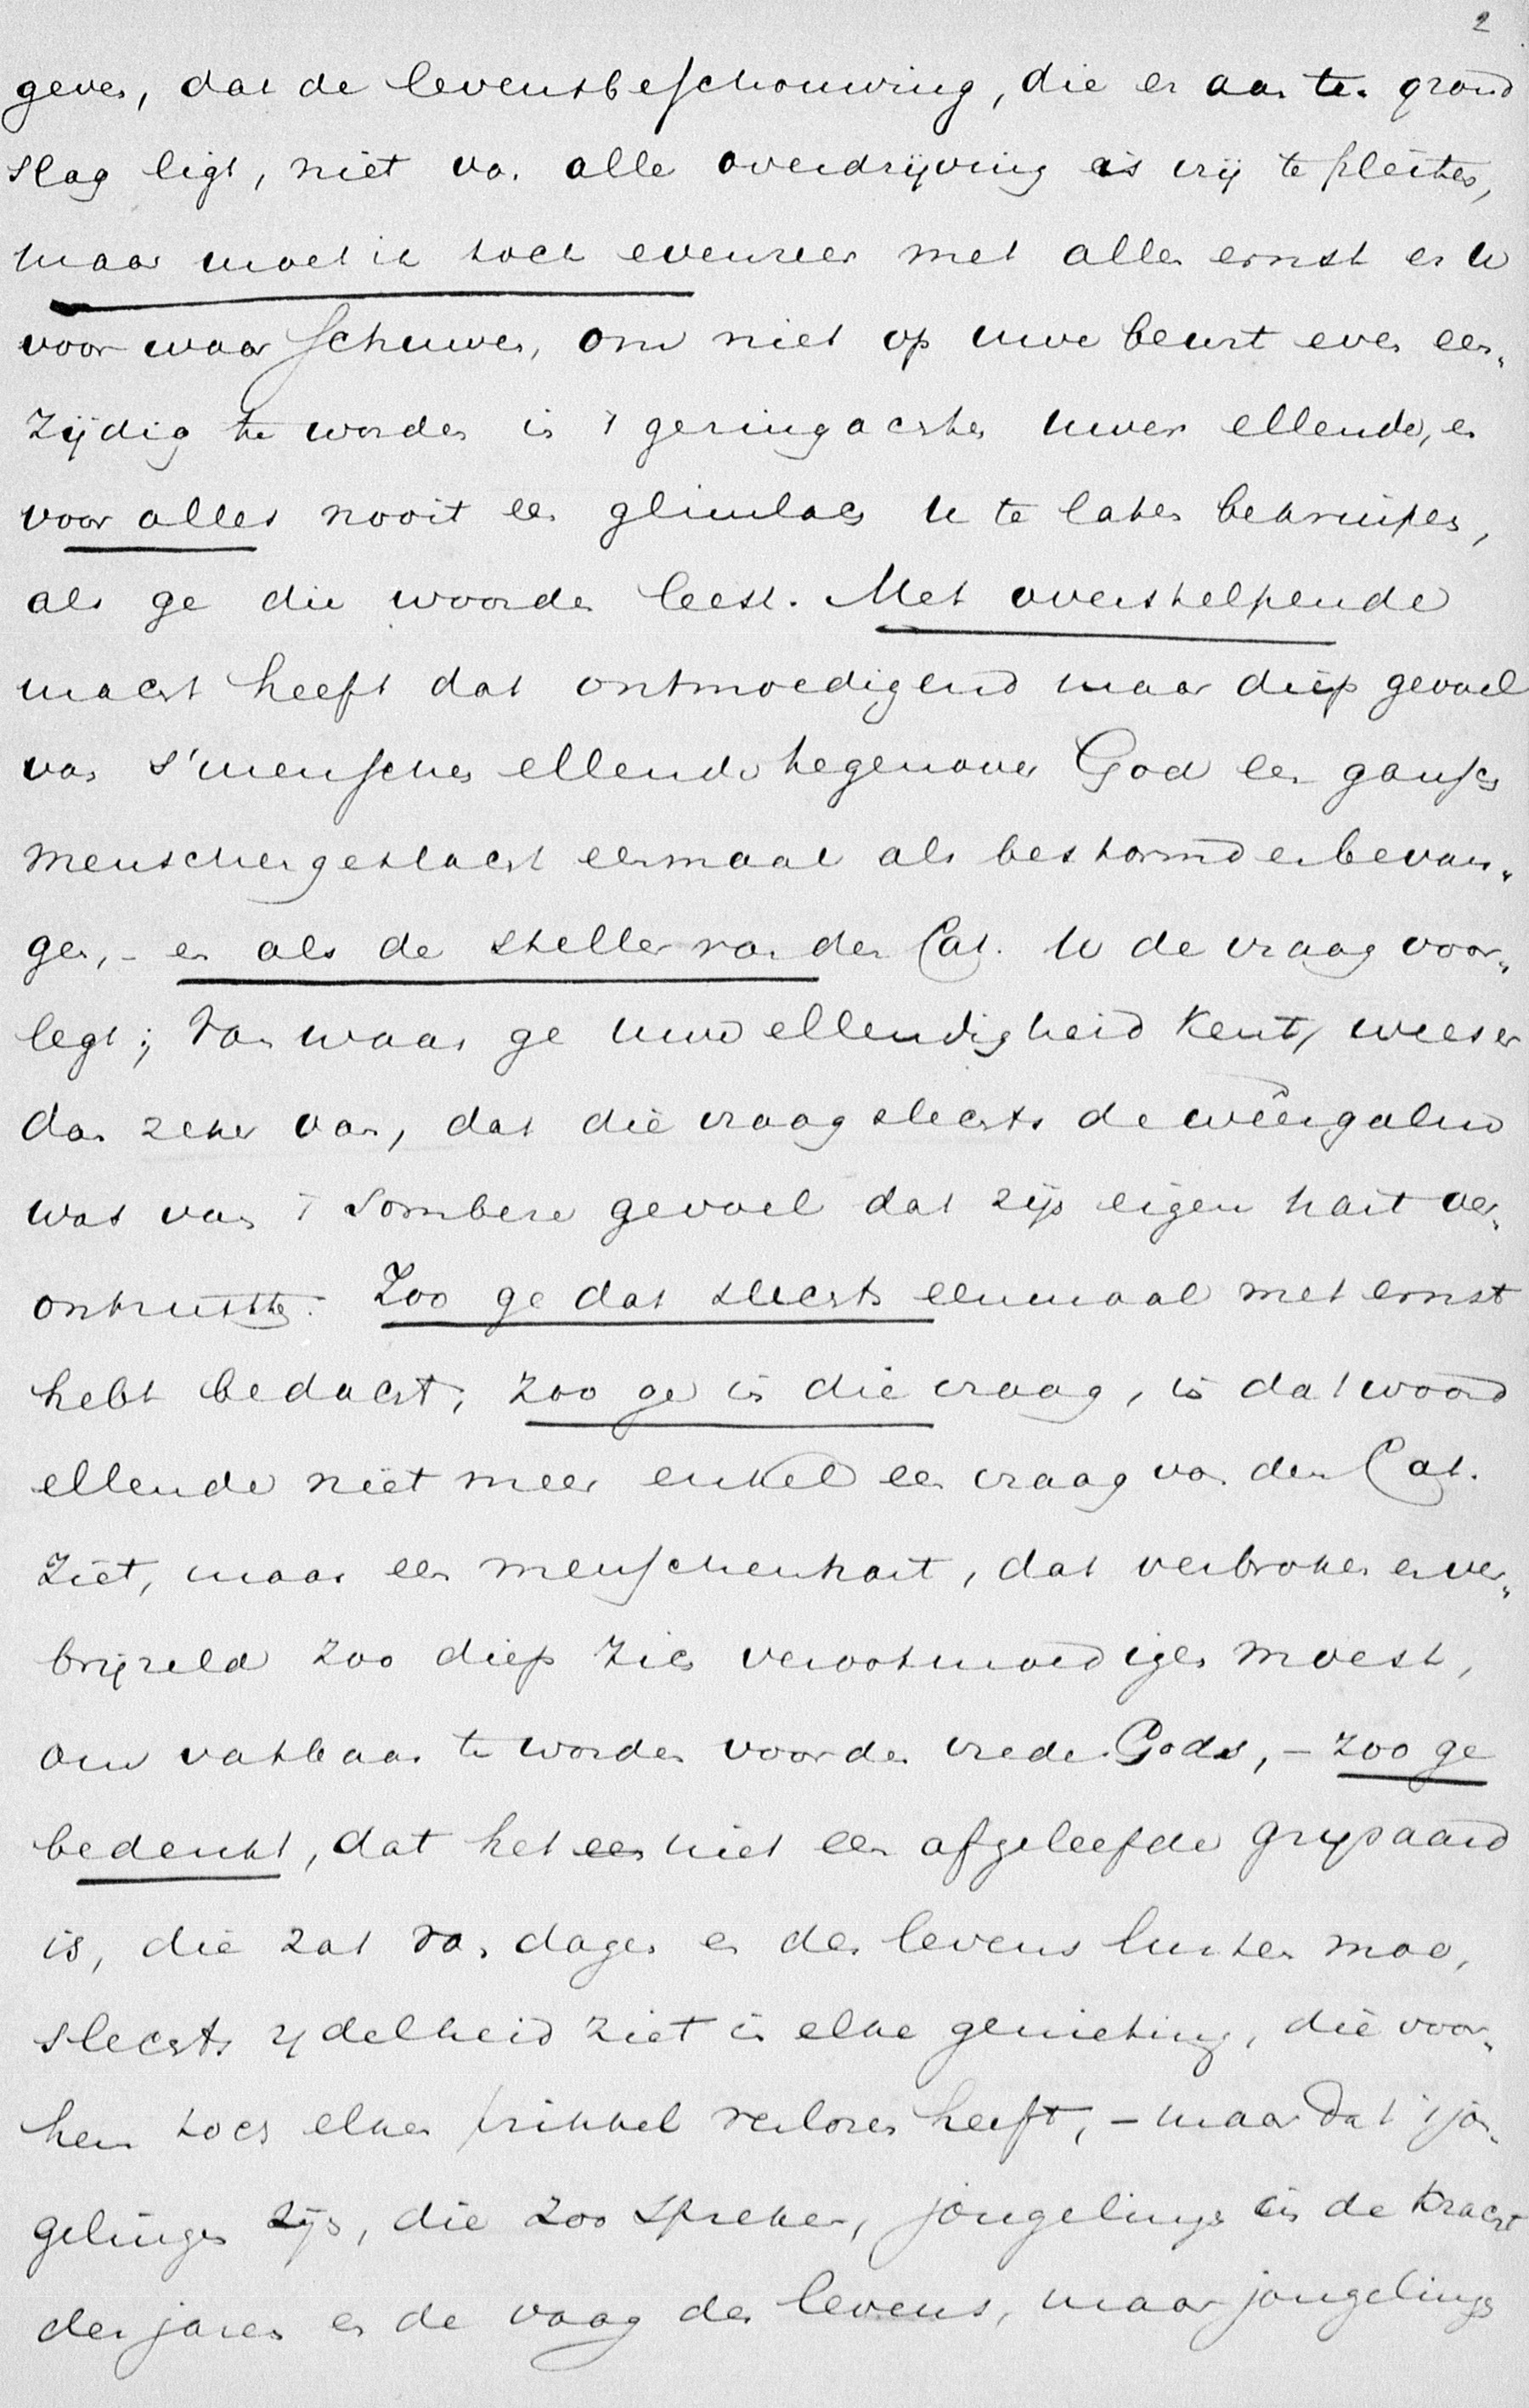 2
geven, dat de levensbeschouwing, die er aan ten grond
slag ligt, niet van alle overdrijving is vrij te pleiten,
maar moet ik toch evenzeer met allen ernst er U
voor waarschuwen, om niet op uwe beurt even een„
zijdig te worden in 't geringachten uwer ellende, en
voor alles nooit een glimlach U te laten bekruipen,
als ge die woorden leest. Met overstelpende
macht heeft dat ontmoedigend maar diep gevoel
van s'menschen ellende tegenover God een gansch
menschengeslacht eenmaal als bestormd en bevan„
gen, – en als de steller van den Cat. U de vraag voor„
legt; Van waar ge uwe ellendigheid kent, wees er
dan zeker van, dat die vraag slechts de weêrgalm
was van 't sombere gevoel dat zijn eigen hart ver„
ontrustte. Zoo ge dat slechts eenmaal met ernst
hebt bedacht; zoo ge in die vraag, in dat woord
ellende niet meer enkel een vraag van den Cat.
ziet, maar een menschenhart, dat verbroken en ver„
brijzeld zoo diep zich verootmoedigen moest,
om vatbaar te worden voor den vrede Gods, – zoo ge
bedenkt, dat het een niet een afgeleefde grijsaard
is, die zat van dagen en des levens lusten moe,
slechts ydelheid ziet in elke genieting, die voor„
hem toch elken prikkel verloren heeft, – maar dat 't jon„
gelingen zijn, die zoo spreken, jongelingen in de kracht
der jaren en de vaag des levens, maar jongelingen